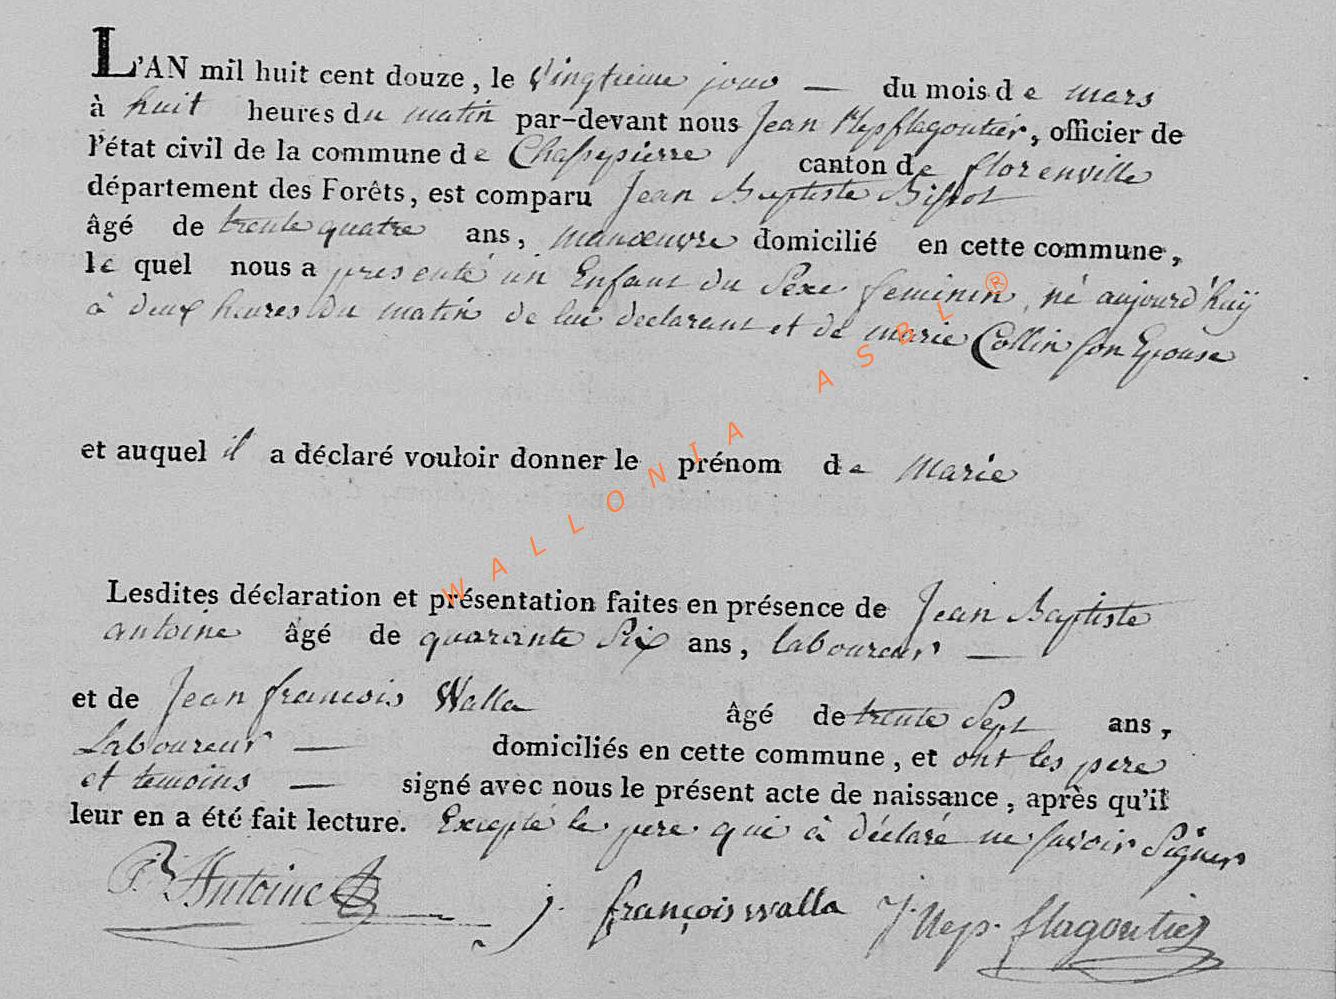 L'AN mil huit cent douze, le Vingtieme jour — du mois de mars
à huit heures du matin par-devant nous Jean Nep flagoutier, officier de
l'état civil de la commune de Chassepierre canton de florenville
département des Forêts, est comparu Jean Baptiste
âgé de trente quatre ans, manœuvre domicilié en cette commune,
le quel nous a presenté un Enfant du Sexe feminin, né aujourd'huÿ
à deux heures du matin de lui declarant et de marie Collin son Epouse
et auquel il a déclaré vouloir donner le prénom de Marie
Lesdites déclaration et présentation faites en présence de Jean Baptiste
antoine âgé de quarante Six ans, laboureur —
et de Jean françois Walla âgé de trente Sept ans,
Laboureur — domiciliés en cette commune, et ont les pere
et temoins — signé avec nous le présent acte de naissance, après qu'il
leur en a été fait lecture. Excepté le pere qui à déclaré ne savoir Signer
Antoine j. françois walla J. Nep. flagoutier
WALLONIA ASBL ®